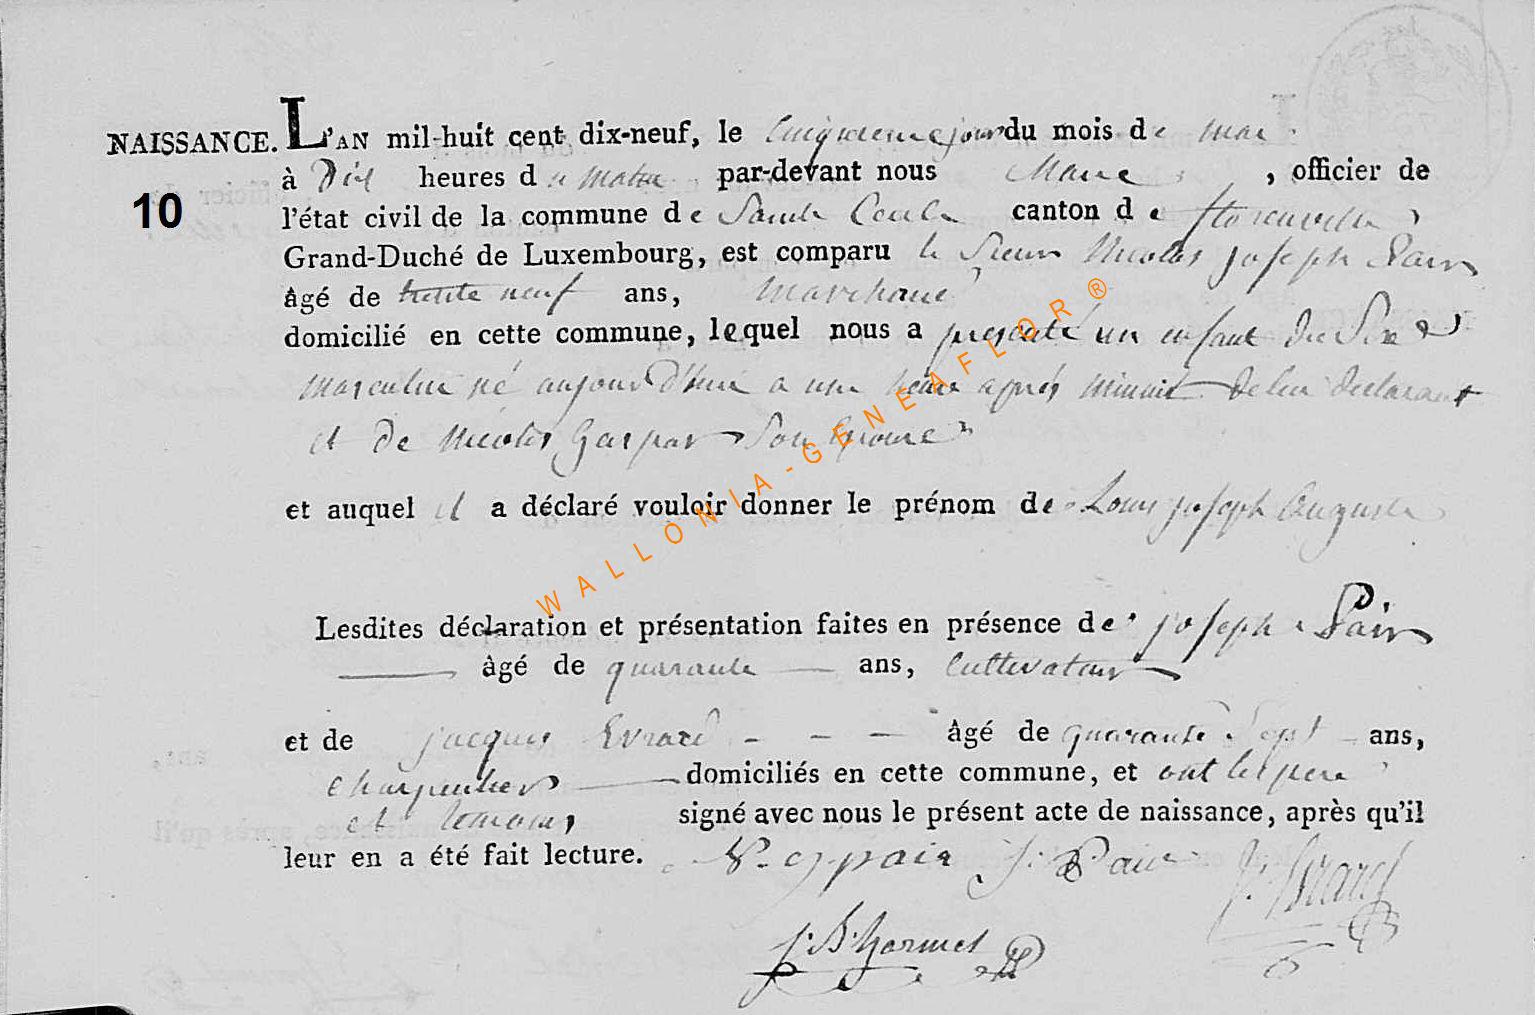 NAISSANCE. L'AN mil-huit cent dix-neuf, le Cinquieme jour du mois de mai
à Dix heures du matin par-devant nous Maire, officier de
10
l'état civil de la commune de Sainte Cecile canton de florenville,
Grand-Duché de Luxembourg, est comparu le Sieur Nicolas joseph Pair
âgé de trente neuf ans, marchand
domicilié en cette commune, lequel nous a presenté un enfant du Sexe
masculin né aujourd'hui a une heure après minuit de lui declarant
et de Nicole Gaspar Son Epouse
et auquel il a déclaré vouloir donner le prénom de Louis joseph Auguste
WALLONIA-GENEAFLOR ®
Lesdites déclaration et présentation faites en présence de joseph Pair
âgé de quarante ans, Cultivateur
et de jacques Evrard - - - âgé de quarante Sept ans,
charpentier domiciliés en cette commune, et ont les pere
et temoins signé avec nous le présent acte de naissance, après qu'il
leur en a été fait lecture. N. j pair J. Pair J. Evrard
J. B. Hormel